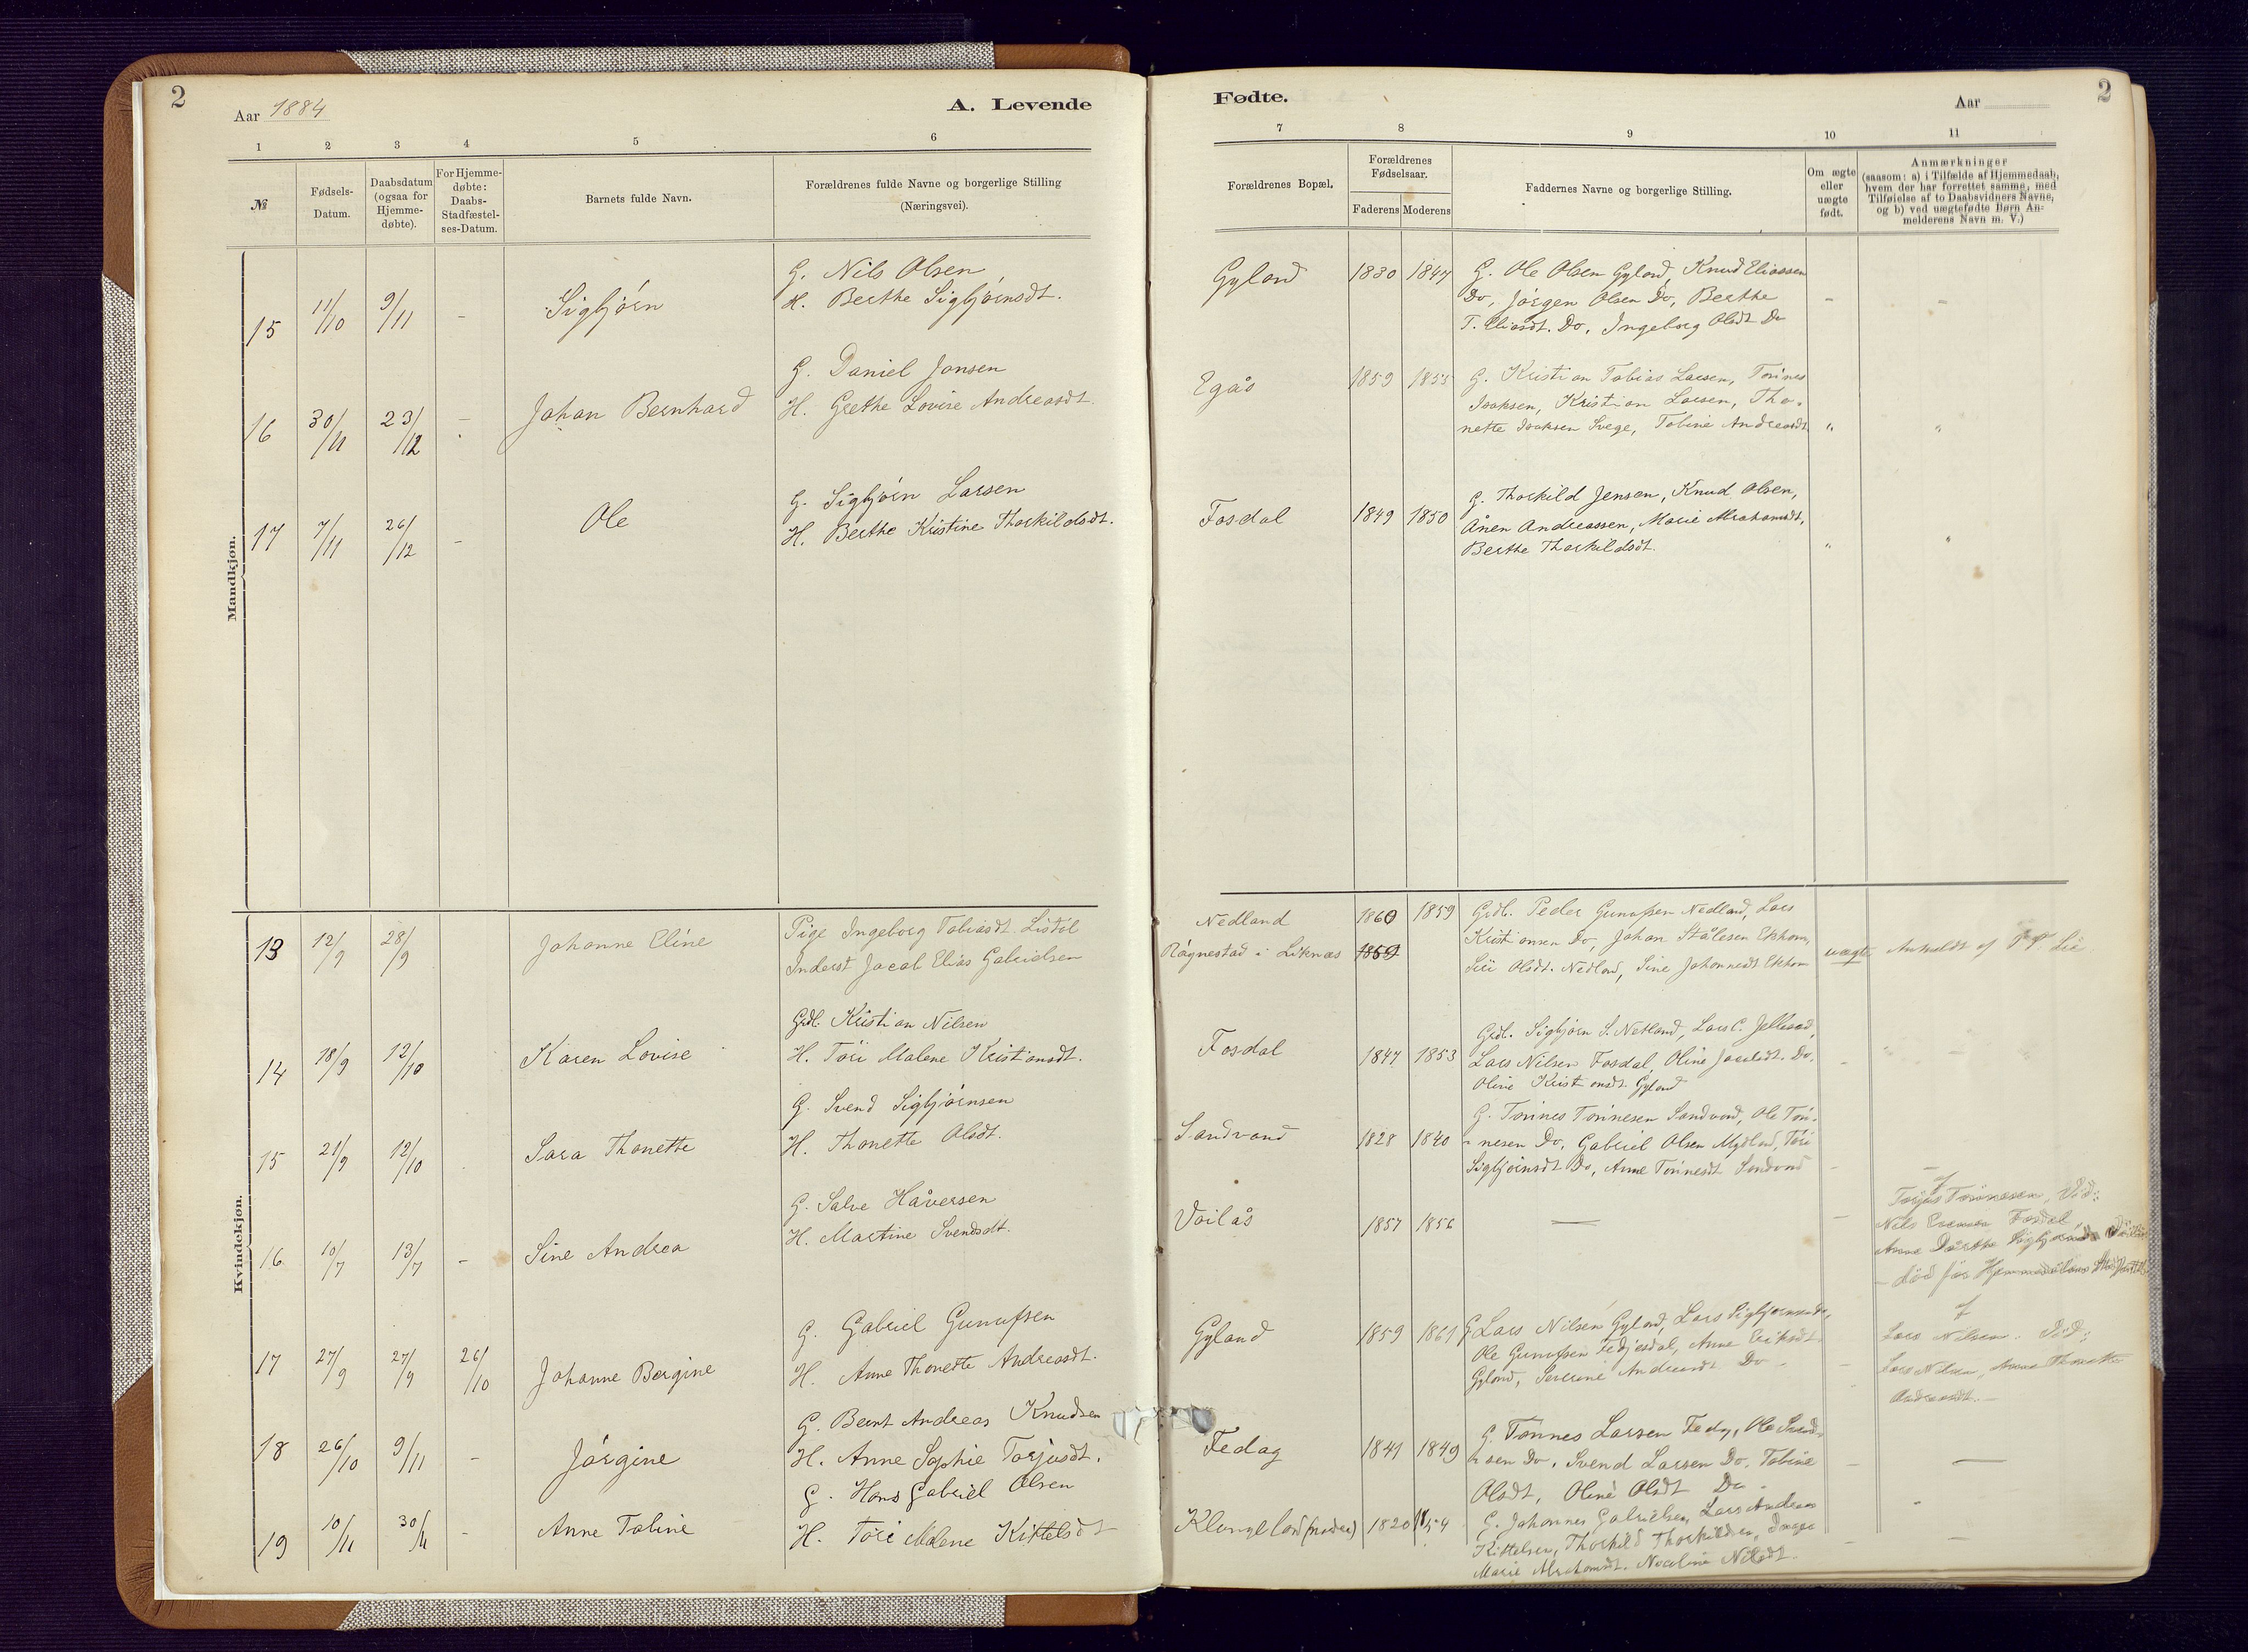 2
Aar 1884
A. Levende
1 2 3 4 5 6
№
Fødsels-Datum.
Daabsdatum (ogsaa for Hjemme-døbte).
For Hjemme-døbte: Daabs-Stadfæstel-ses-Datum.
Barnets fulde Navn.
Forældrenes fulde Navne og borgerlige Stilling
(Næringsvei).
Mandkjøn.
15 11/10 9/11 - Sigbjörn
G. Nils Olsen
H. Berthe Sigbjörnsdt.
16 30/11 23/12 - Johan Bernhard
G. Daniel Jansen
H. Grethe Lovise Andreasdt.
17 7/11 26/12 - Ole
G. Sigbjörn Larsen
H. Berthe Kristine Thorkildsdt.
Kvindekjøn.
13 12/9 28/9 Johanne Eline
Pige Ingeborg Tobiasdt. Listöl
Inderst Jacob Elias Gabrielsen
14 18/9 12/10 Karen Lovise
Grdl. Kristian Nilsen
H. Töri Malene Kristiansdt.
15 21/9 12/10 Sara Thonette
G. Svend Sigbjörnsen
H. Thonette Olsdt.
16 10/7 13/7 - Sine Andrea
G. Salve Håversen
H. Martine Svendsdt.
17 27/9 27/9 26/10 Johanne Bergine
G. Gabriel Gunufsen
H. Anne Thonette Andreasdt.
18 26/10 9/11 - Jörgine
G. Bernt Andreas Knudsen
H. Anne Sophie Torjusdt.
19 10/11 30/11 - Anne Tobine
G. Hans Gabriel Olsen
H. Töri Malene Kittelsdt
Fødte.
Aar
2
7 8 9 10 11
Forældrenes Bopæl.
Forældrenes Fødselsaar.
Faderens Moderens
Faddernes Navne og borgerlige Stilling.
Om ægte eller uægte født.
Anmærkninger
(saasom: a) i Tilfælde af Hjemmedaab,
hvem der har forrettet samme, med
Tilføielse af to Daabsvidners Navne,
og b) ved uægtefødte Børn An-
melderens Navn m. V.)
Gyland 1830 1847
G. Ole Olsen Gyland, Knud Eliassen
Do, Jörgen Olsen Do, Berthe
T. Eliasdt. Do, Ingeborg Olsdt Do
Egås 1859 1855
G. Kristian Tobias Larsen, Tönnes
Isaksen, Kristian Larsen, Tho-
nette Isaksen Svege, Tobine Andreasdt
Fosdal 1849 1850
G. Thorkild Jensen, Knud Olsen,
Ånen Andreassen, Marie Abrahamsdt,
Berthe Thorkildsdt.
Nedland 1860 1859
Rögnestad i Liknæs 1859
Grdb. Peder Gunufsen Nedland, Lars
Kristiansen Do, Johan Stålesen
Siri Olsdt. Nedland, Sine Johannesdt
uægte
Anmeldt af Lie
Fosdal 1847 1853
Grdl. Sigbjörn S. Netland, Lars C.
Lars Nilsen Fosdal, Oline Jacobsdt. Do.
Oline Kristiansdt. Gyland
Sandvand 1828 1840
G. Tönnes Tönnesen Sandvand, Ole Tön-
nesen Do, Gabriel Olsen Mydland, Töri
Sigbjörnsdt Do, Anne Tönnesdt Sandvand
Voilås 1857 1856
af
Torjus Tönnesen, Vid:
Nils Fosdal
Anne Dorthe
- död för
Gyland 1859 1861
G Lars Nilsen Gyland, Lars
Ole Gunufsen Fedjesdal, Anne Eriksdt
Gyland, Severine Andreasdt Do -
af
Lars Nilsen.
Lars Nilsen, Anne Thonette
Andreasdt.
Fedog 1841 1849
G. Tönnes Larsen Fedog, Ole Svend-
sen Do, Svend Larsen Do. Tobine
Olsdt, Oline Olsdt Do
Klungeland (nedre) 1820 1854
G. Johannes Gabrielsen, Lars Andreas
Kittelsen, Thorkild Thorkildsen,
Marie Abrahamsdt. Nilsdt.